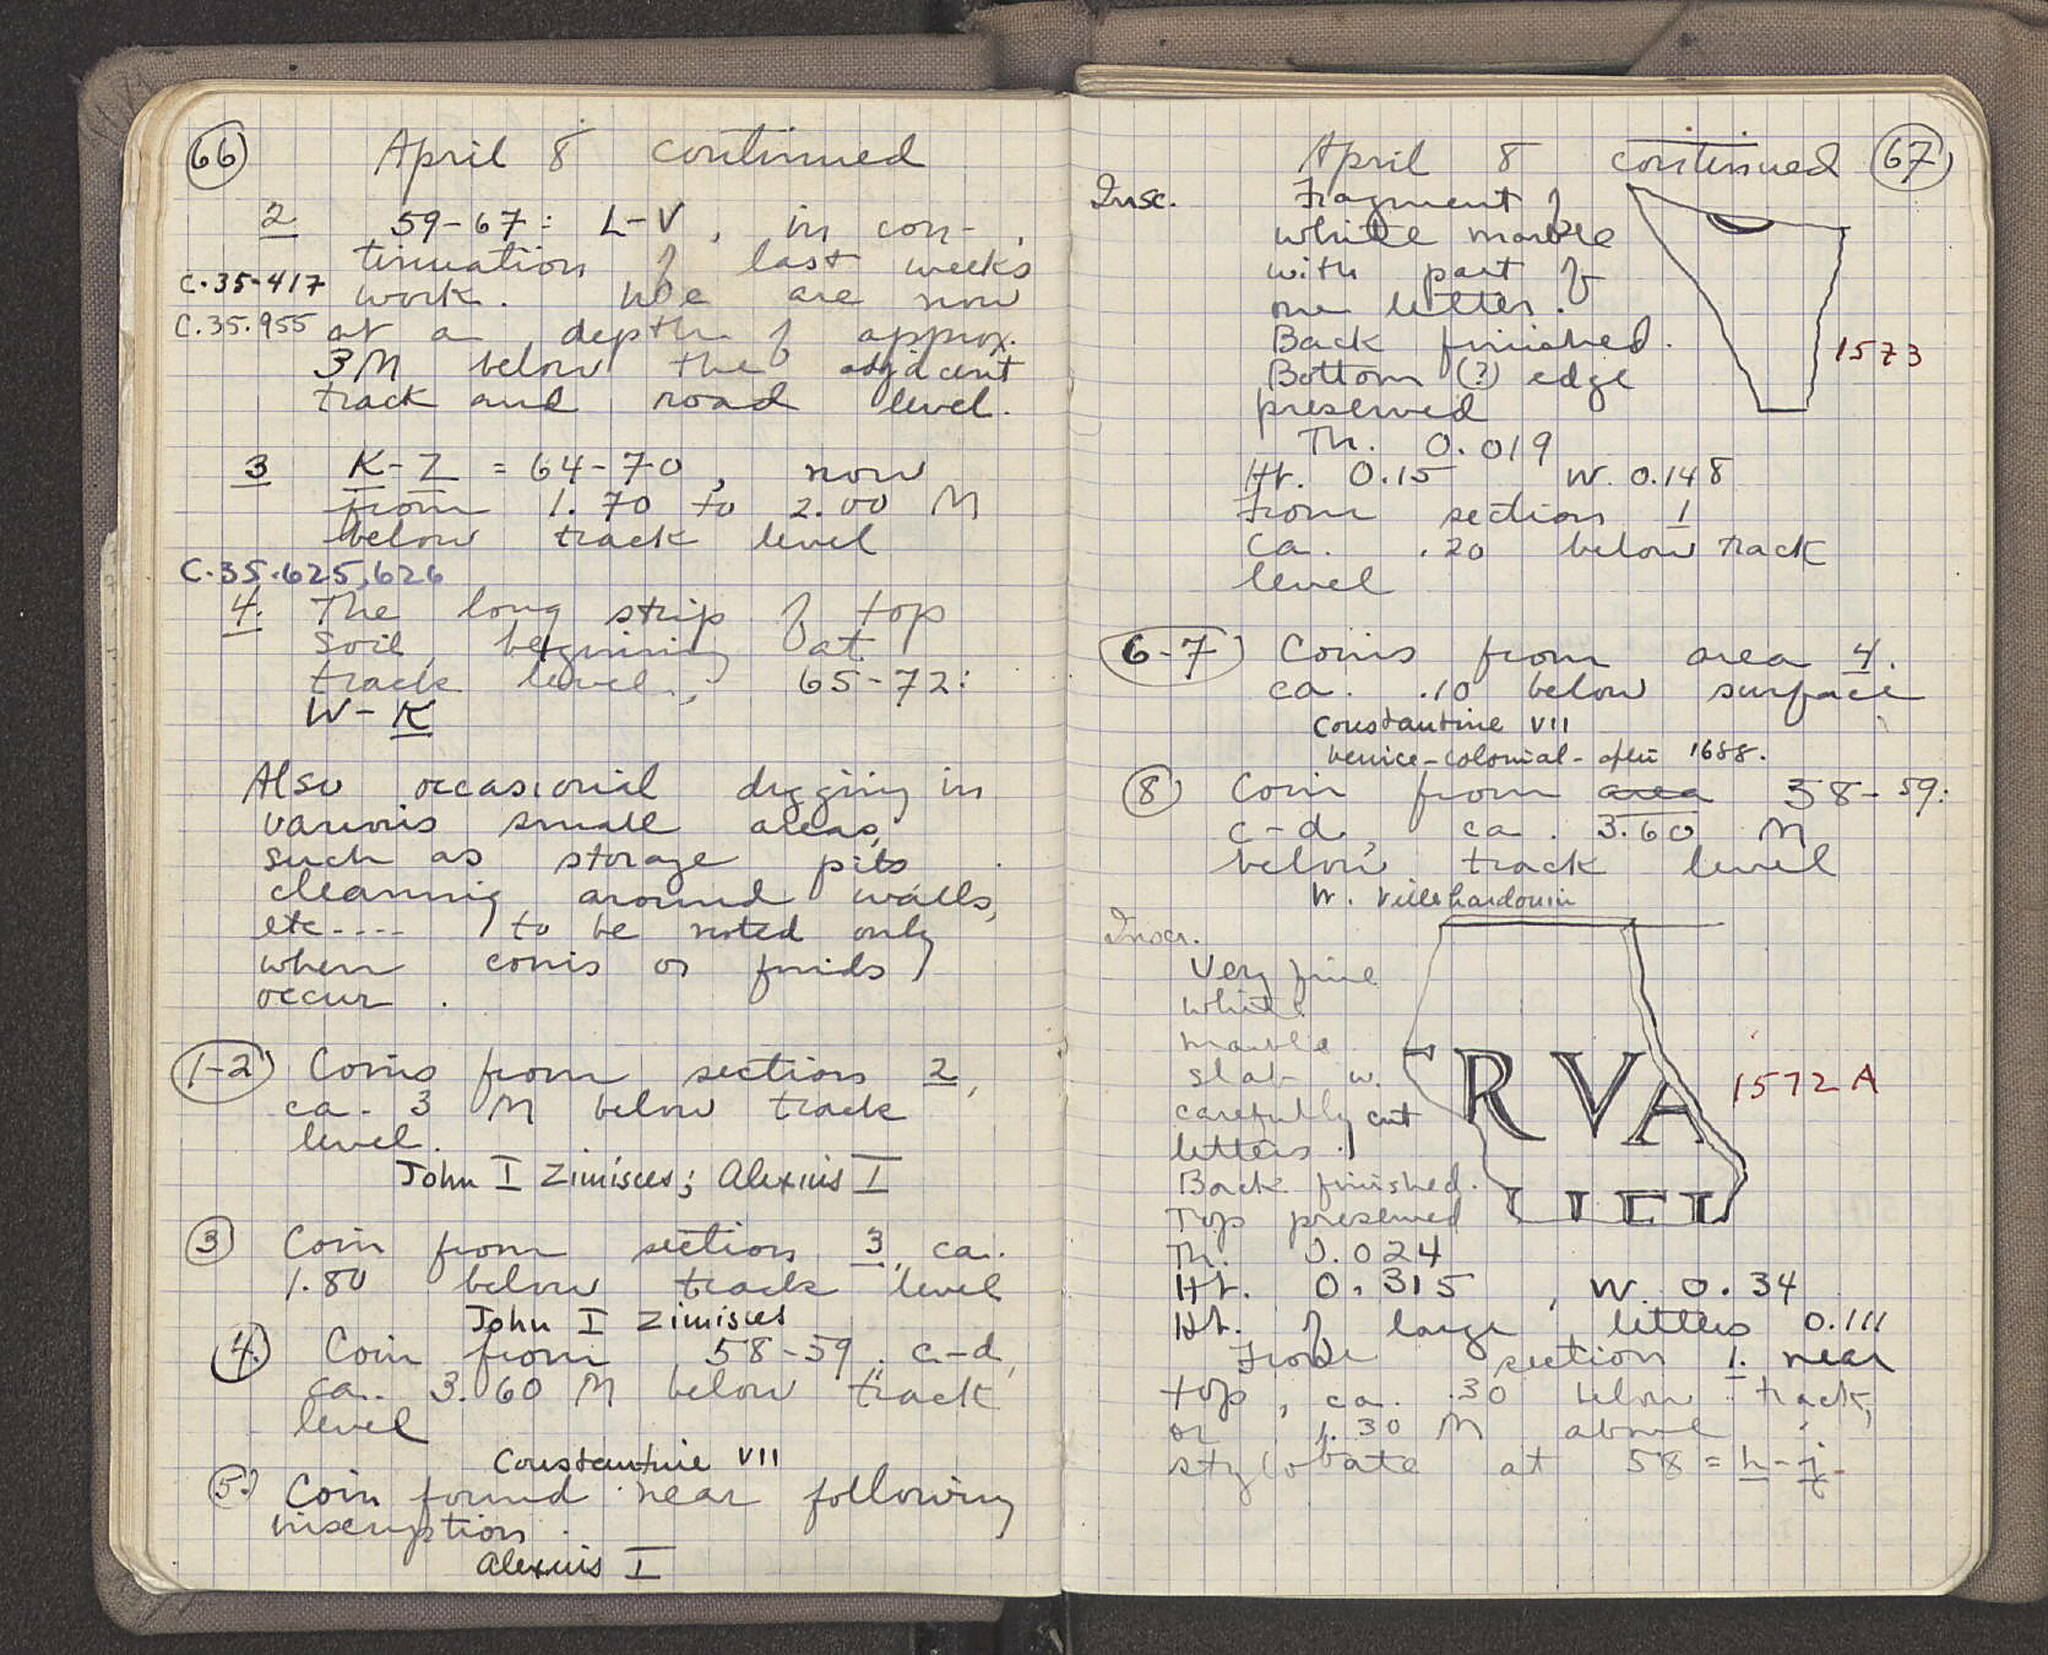 66
April 8 continued
2 59-67: L-V, in con-
tinuation of last weeks
C.35-417 work. We are now
C.35.955 at a depth of approx.
3 M below the adjacent
track and road level.
3 K-Z = 64-70, now
from 1.70 to 2.00 M
below track level
C.35.625,626
4. The long strip of top
soil beginning at
track level, 65-72:
W-K
Also occasional digging in
various small areas,
such as storage pits
cleaning around walls,
etc---- to be noted only
when coins or finds
occur.
1-2 Coins from section 2,
ca. 3 M below track
level.
John I Zimisces; Alexius I
3 Coin from section 3, ca.
1.80 below track level
John I Zimisces
4. Coin from 58-59: c-d,
ca. 3.60 M below track
level
Constantine VII
5. Coin found near following
inscription.
Alexius I
April 8 continued 67
Insc. Fragment of
white marble
with part of
one letter.
Back finished.
1573
Bottom (?) edge
preserved
Th. 0.019
Ht. 0.15 W. 0.148
From section 1
ca. .20 below track
level
6-7 Coins from area 4.
ca. .10 below surface
Constantine VII
Venice-colonial-after 1688.
8 Coin from area 58-59:
c-d, ca. 3.60 M
below track level
W. Villehardouin
Inscr.
Very fine
white
marble
slab w.
RVA
1572 A
carefully cut
letters.
Back finished.
Top preserved
Th. 0.024
Ht. 0.315, W. 0.34
Ht. of large letters 0.111
From section 1. near
top, ca. .30 below track,
or 1.30 M above
stylobate at 58 = h-j.